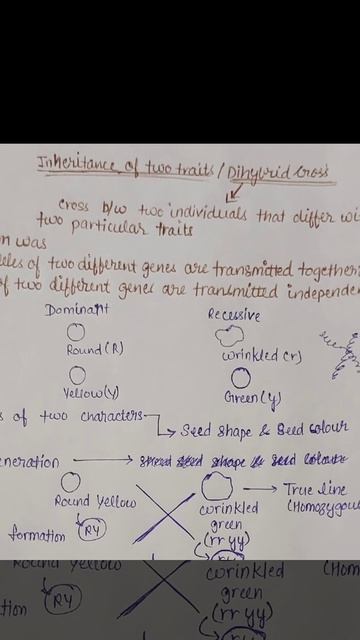 Inheritance of two traits / Dihybrid Cross
cross b/w two individuals that differ wi
two particular traits
n was
leles of two different genes are transmitted together
of two different genes are transmitted independen
Dominant Recessive
Round (R) wrinkled (r)
Yellow (Y) Green (y)
s of two characters → Seed shape & Seed colour
neration → seed shape & seed colour
Round Yellow → True line
wrinkled (Homozygous
green
formation RY (rr yy)
Round Yellow wrinkled (Hom
green
tion RY (rr yy)